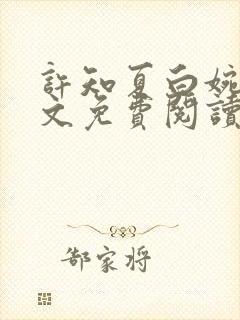 許知夏白婉
文免費閱讀
郜家将